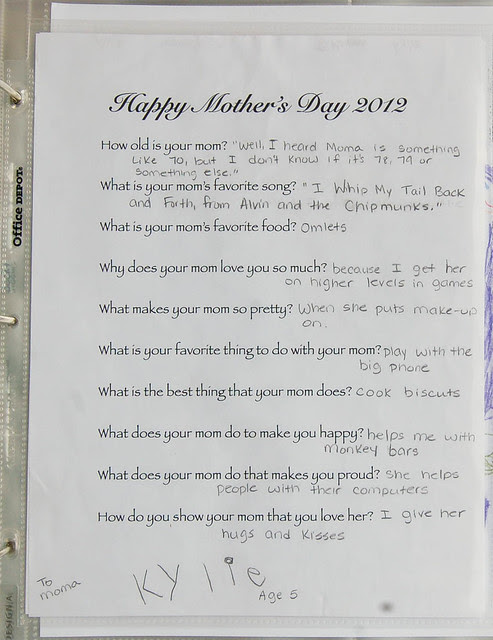 Happy Mother's Day 2012
How old is your mom? "Well, I heard Moma is something
like 70, but I don't know if it's 78, 79 or
something else."
What is your mom's favorite song? "I Whip My Tail Back
and Forth, from Alvin and the Chipmunks."
What is your mom's favorite food? Omlets
Why does your mom love you so much? because I get her
on higher levels in games
What makes your mom so pretty? When she puts make-up
on.
What is your favorite thing to do with your mom? play with the
big phone
What is the best thing that your mom does? Cook biscuts
What does your mom do to make you happy? helps me with
monkey bars
What does your mom do that makes you proud? She helps
people with their computers
How do you show your mom that you love her? I give her
hugs and kisses
To
moma
Kylie
Age 5
Office DEPOT.
DESIGN.A